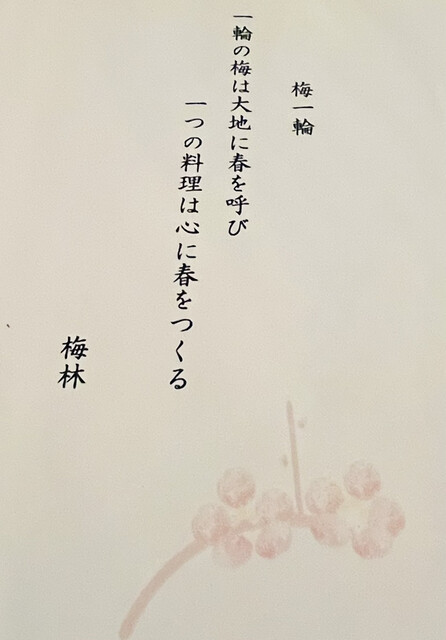 梅一輪
一輪の梅は大地に春を呼び
一つの料理は心に春をつくる
梅林